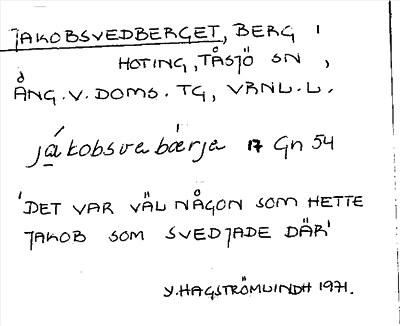 JAKOBSVEDBERGET, BERG I
HOTING, TÅSJÖ SN,
ÅNG. V. DOMS. TG, VRNL. L.
jákobsva bærja 17 Gn 54
'DET VAR VÄL NÅGON SOM HETTE
JAKOB SOM SVEDJADE DÄR'
Y. HAGSTRÖMLINDH 1971.